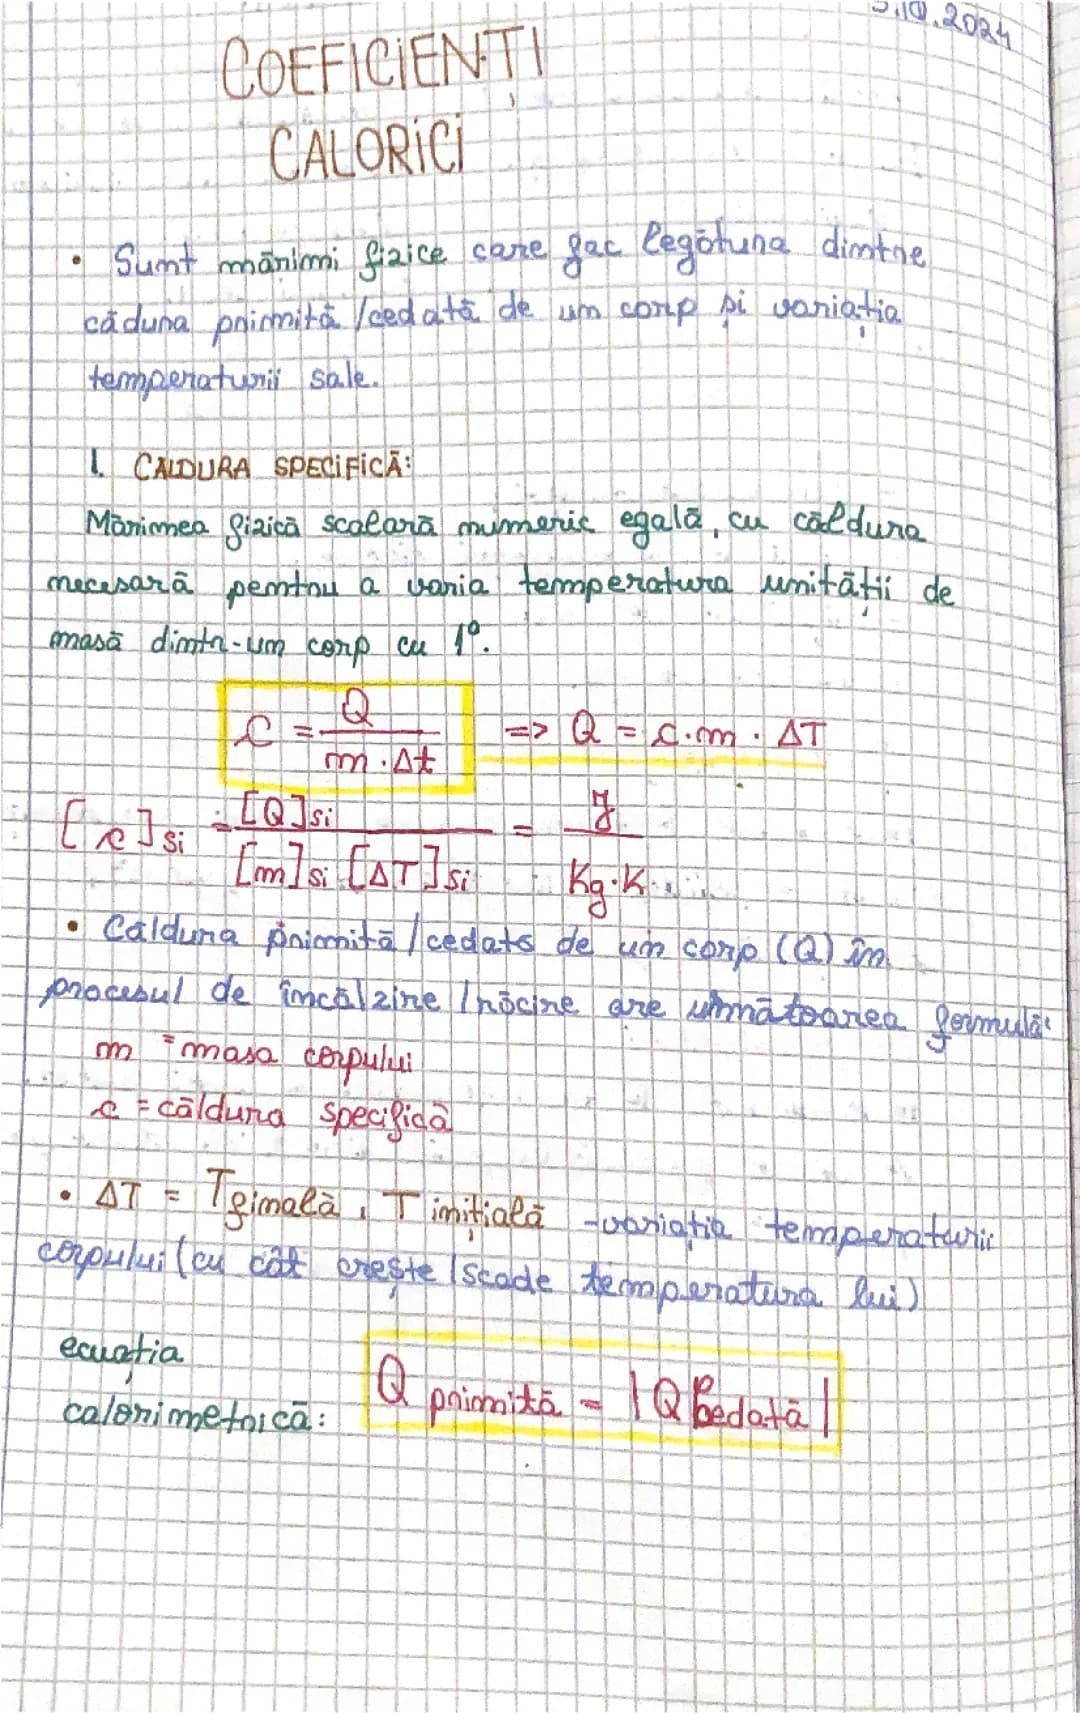 .10.2024
COEFICIENȚI
CALORICI
• Sunt mărimi fizice care fac legătura dintre
căldura primită /cedată de un corp și variația
temperaturii sale.
1. CALDURA SPECIFICĂ:
Mărimea fizică scalară numeric egală, cu căldura
necesară pentru a varia temperatura unității de
masă dintr-un corp cu 1°.
c = Q / m · Δt => Q = c · m · ΔT
[c]si = [Q]si / [m]si [ΔT]si = J / Kg·K
• Căldura primită /cedată de un corp (Q) în
procesul de încălzire /răcire are următoarea formulă:
m = masa corpului
c = căldura specifică
• ΔT = Tfinală, T inițială -variația temperaturii
corpului (cu cât crește /scade temperatura lui)
ecuația
calorimetrică: Q primită = |Q cedată|